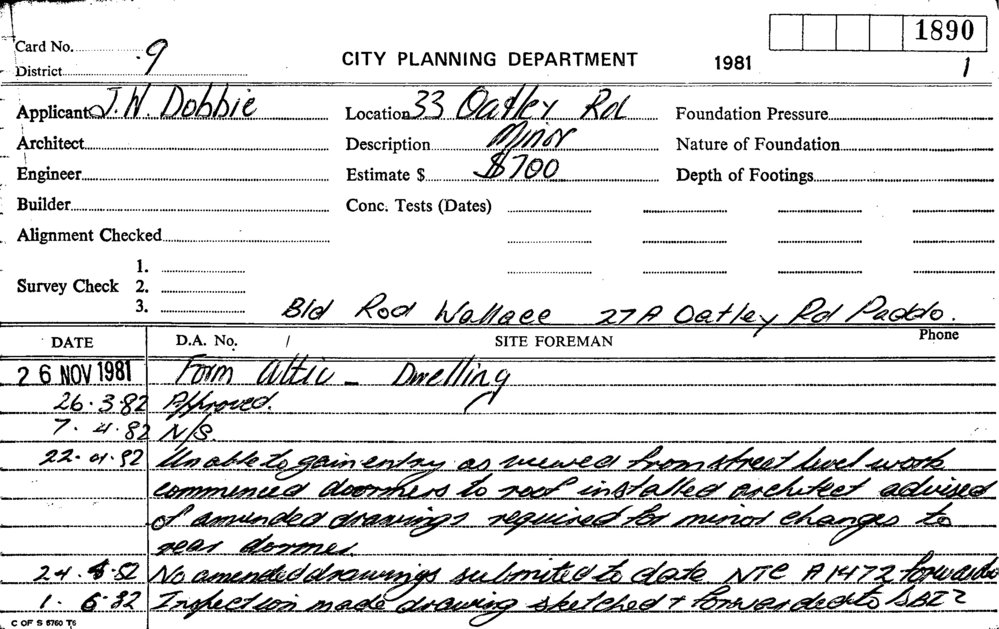 1890
Card No. 9
CITY PLANNING DEPARTMENT 1981 1
District
Applicant J. W. Dobbie Location 33 Oatley Rd Foundation Pressure
Architect Description Minor Nature of Foundation
Engineer Estimate $ $700 Depth of Footings
Builder Conc. Tests (Dates)
Alignment Checked
1.
Survey Check 2.
3.
Bld Rod Wallace 27A Oatley Rd Paddo.
DATE D.A. No. / SITE FOREMAN Phone
26 NOV 1981 Form Attic - Dwelling
26.3.82 Approved.
7.4.82 N/S.
22.4.82 Unable to gain entry as viewed from street level work
commenced doormers to roof installed architect advised
of amended drawings required for minor changes to
rear dormer.
24.5.82 No amended drawings submited to date NTC A1472 forwarded
1.6.82 Inspection made drawing sketched + forwarded to
C OF S 5760 T6